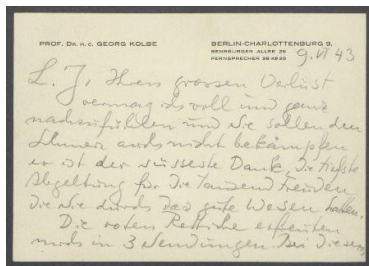 PROF. DR. H. C. GEORG KOLBE
BERLIN-CHARLOTTENBURG 9,
SENSBURGER ALLEE 26
FERNSPRECHER 99 4620
9. VI 43
L. J, Ihren grossen Verlust
vermag ich voll und ganz
nachzufühlen und Sie sollen den
Schmerz auch nicht bekämpfen
er ist der süsseste Dank, die tiefste
Abgeltung für die tausend Freuden
die Sie durch das gute Wesen hatten.
Die roten Rettiche erfreuten
mich in 3 Sendungen. Bei diesem